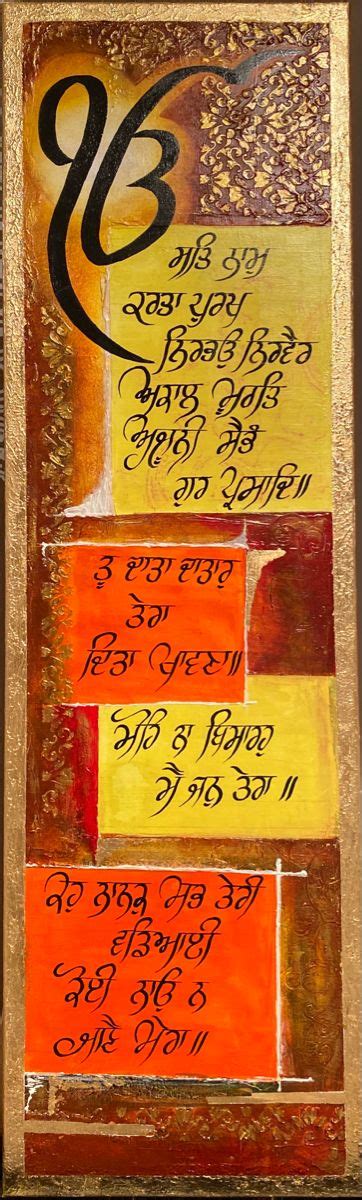 ੴ
ਸਤਿ ਨਾਮੁ
ਕਰਤਾ ਪੁਰਖੁ
ਨਿਰਭਉ ਨਿਰਵੈਰ
ਅਕਾਲ ਮੂਰਤਿ
ਅਜੂਨੀ ਸੈਭੰ
ਗੁਰ ਪ੍ਰਸਾਦਿ॥
ਤੂ ਦਾਤਾ ਦਾਤਾਰੁ
ਤੇਰਾ
ਦਿਤਾ ਖਾਵਣਾ॥
ਮੋਹਿ ਨ ਬਿਸਾਰਹੁ
ਮੈ ਜਨੁ ਤੇਰਾ ॥
ਕਹੁ ਨਾਨਕੁ ਸਭ ਤੇਰੀ
ਵਡਿਆਈ
ਕੋਈ ਨਾਉ ਨ
ਜਾਣੈ ਮੇਰਾ॥